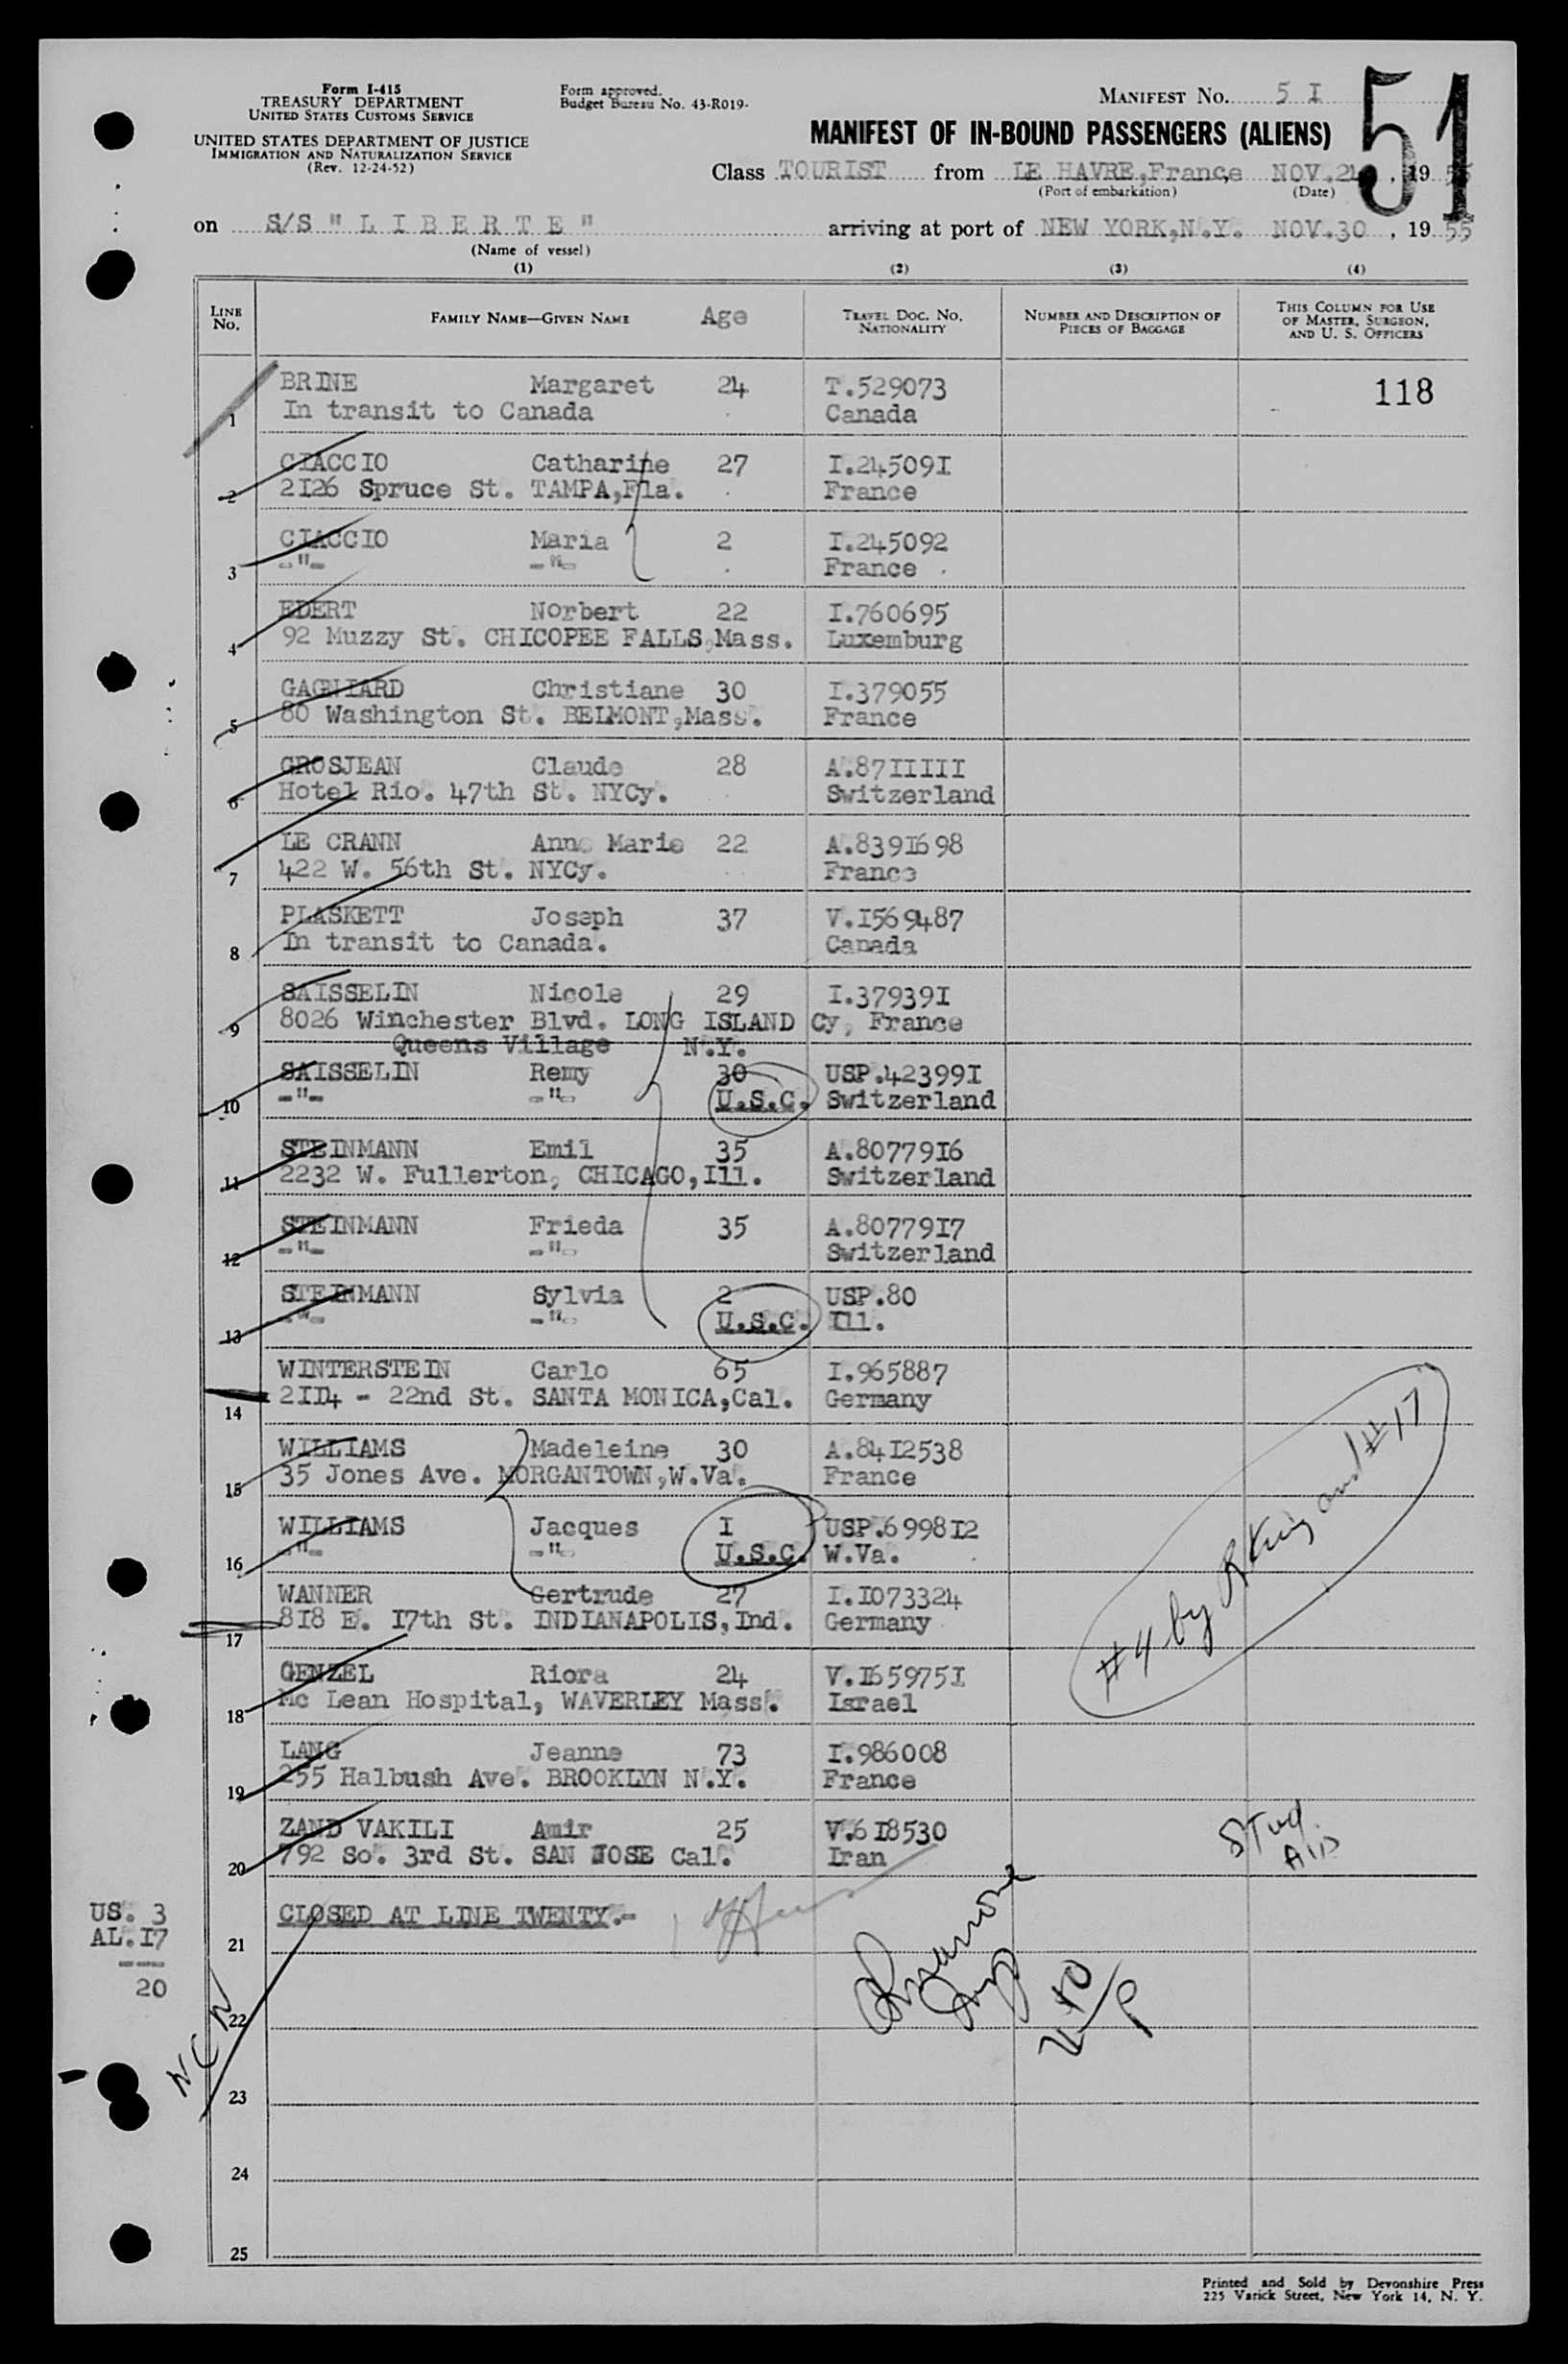 Form I-415
TREASURY DEPARTMENT
UNITED STATES CUSTOMS SERVICE
UNITED STATES DEPARTMENT OF JUSTICE
IMMIGRATION AND NATURALIZATION SERVICE
(Rev. 12-24-52)
Form approved.
Budget Bureau No. 43-R019-
MANIFEST NO. 5 I
51
MANIFEST OF IN-BOUND PASSENGERS (ALIENS)
Class TOURIST from LE HAVRE,France NOV. , 19
(Port of embarkation) (Date)
on S/S " L I B E R T E " arriving at port of NEW YORK,N.Y. NOV.30 , 19 55
(Name of vessel)
(1) (2) (3) (4)
LINE NO. FAMILY NAME—GIVEN NAME Age TRAVEL DOC. NO. NATIONALITY NUMBER AND DESCRIPTION OF PIECES OF BAGGAGE THIS COLUMN FOR USE OF MASTER, SURGEON, AND U. S. OFFICERS
BRINE Margaret 24 T.529073 118
1 In transit to Canada Canada
CIACCIO Catharine 27 I.24509I
2 2I26 Spruce St. TAMPA,Fla. France
CIACCIO Maria 2 I.245092
3 -"- -"- France
EDERT Norbert 22 I.760695
4 92 Muzzy St. CHICOPEE FALLS,Mass. Luxemburg
GAGNIARD Christiane 30 I.379055
5 80 Washington St. BELMONT,Mass. France
GROSJEAN Claude 28 A.87IIIII
6 Hotel Rio. 47th St. NYCy. Switzerland
LE CRANN Anne Marie 22 A.839I698
7 422 W. 56th St. NYCy. France
PLASKETT Joseph 37 V.I569487
8 In transit to Canada. Canada
SAISSELIN Nicole 29 I.37939I
9 8026 Winchester Blvd. LONG ISLAND Cy, France
Queens Village N.Y.
SAISSELIN Remy 30 USP.42399I
10 -"- -"- U.S.C. Switzerland
STEINMANN Emil 35 A.80779I6
11 2232 W. Fullerton, CHICAGO,Ill. Switzerland
STEINMANN Frieda 35 A.80779I7
12 -"- -"- Switzerland
STEINMANN Sylvia 2 USP.80
13 -"- -"- U.S.C. Ill.
WINTERSTEIN Carlo 65 I.965887
14 2II4 - 22nd St. SANTA MONICA,Cal. Germany
WILLIAMS Madeleine 30 A.84I2538
15 35 Jones Ave. MORGANTOWN,W.Va. France
WILLIAMS Jacques I USP.6998I2
16 -"- -"- U.S.C. W.Va.
WANNER Gertrude 27 I.I073324
17 8I8 E. I7th St. INDIANAPOLIS,Ind. Germany
#4 by and #17
GENZEL Riora 24 V.I65975I
18 Mc Lean Hospital, WAVERLEY Mass. Israel
LANG Jeanne 73 I.986008
19 255 Halbush Ave. BROOKLYN N.Y. France
ZAND VAKILI Amir 25 V.6I8530
20 792 So. 3rd St. SAN JOSE Cal. Iran
Stud.
US. 3
AL.I7
20
CLOSED AT LINE TWENTY.-
21
22
23
24
25
Printed and Sold by Devonshire Press
225 Varick Street, New York 14, N. Y.